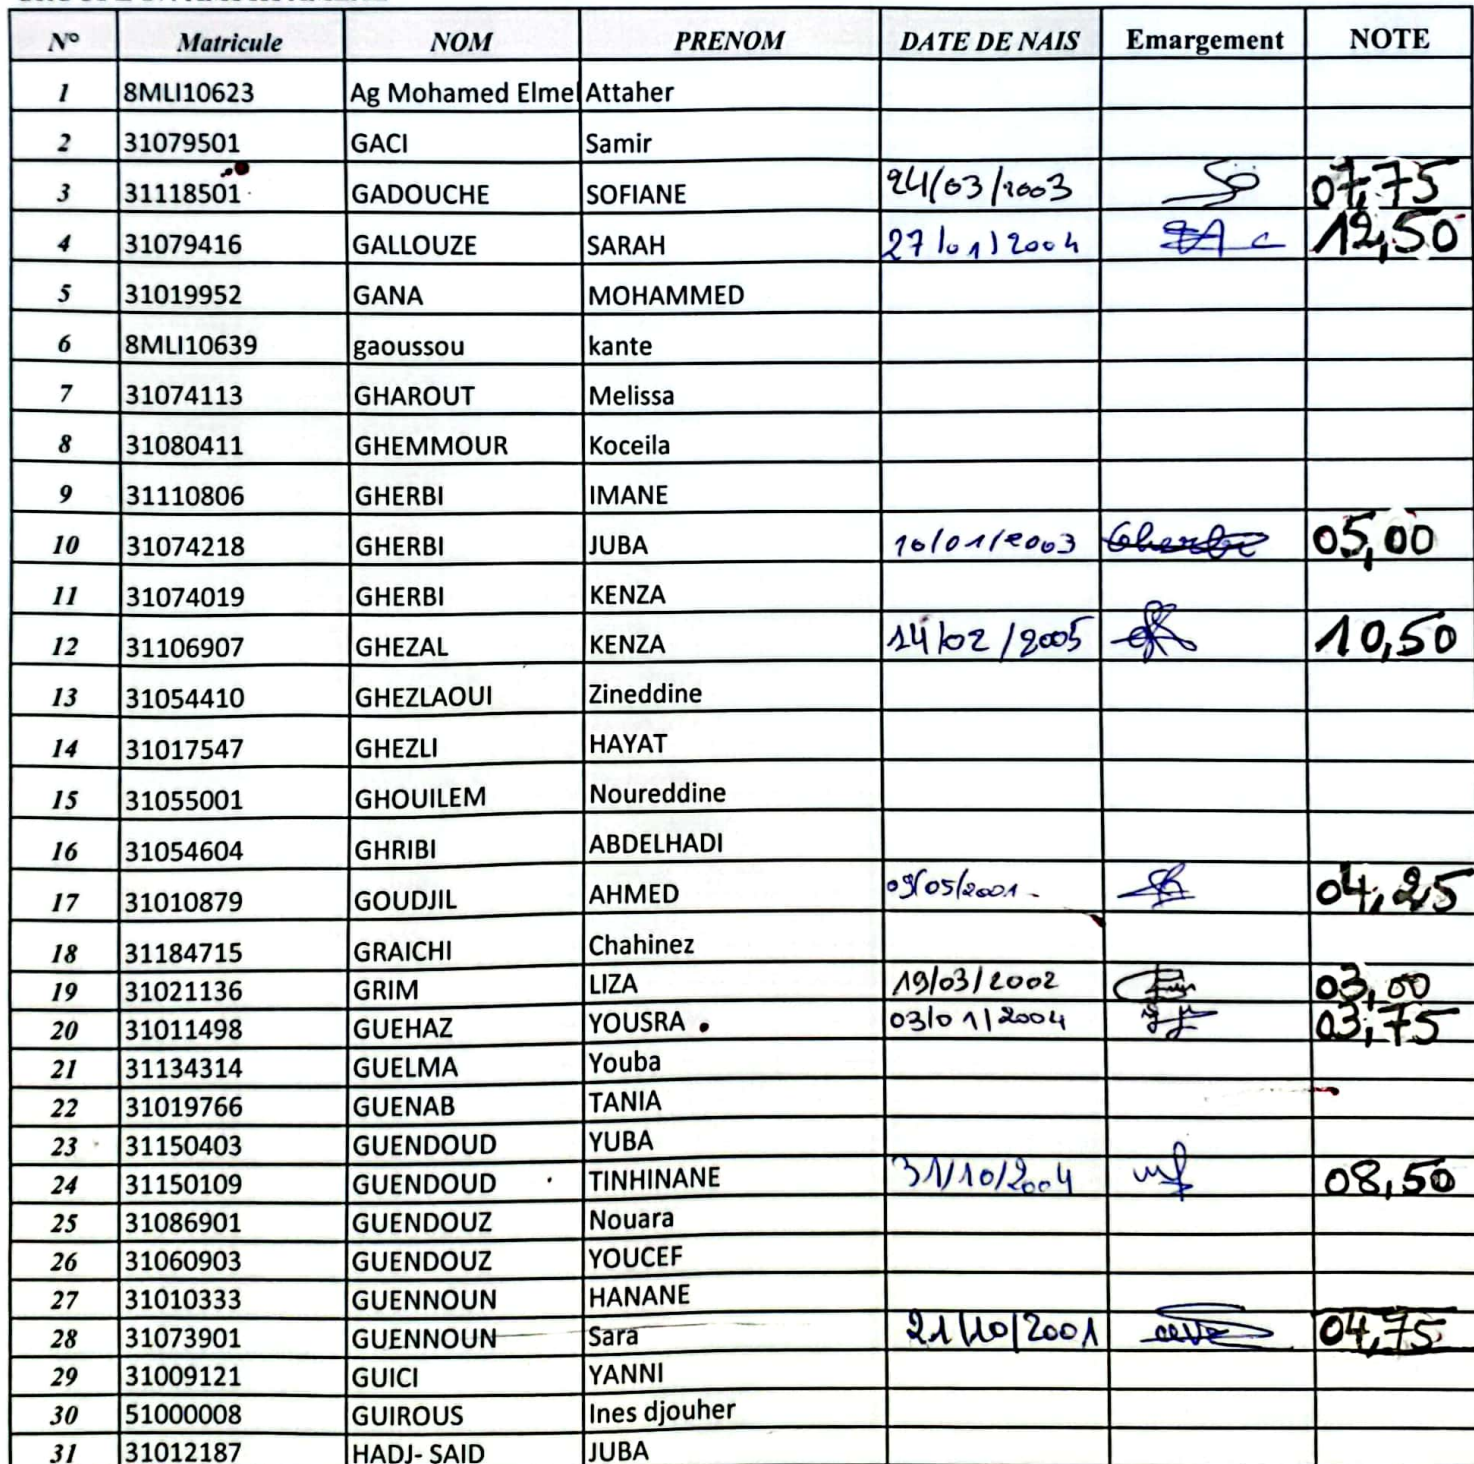 N° Matricule NOM PRENOM DATE DE NAIS Emargement NOTE
1 8MLI10623 Ag Mohamed Elmel Attaher
2 31079501 GACI Samir
3 31118501 GADOUCHE SOFIANE 24/03/2003 07,75
4 31079416 GALLOUZE SARAH 27/01/2004 12,50
5 31019952 GANA MOHAMMED
6 8MLI10639 gaoussou kante
7 31074113 GHAROUT Melissa
8 31080411 GHEMMOUR Koceila
9 31110806 GHERBI IMANE
10 31074218 GHERBI JUBA 10/01/2003 Gherbi 05,00
11 31074019 GHERBI KENZA
12 31106907 GHEZAL KENZA 14/02/2005 10,50
13 31054410 GHEZLAOUI Zineddine
14 31017547 GHEZLI HAYAT
15 31055001 GHOUILEM Noureddine
16 31054604 GHRIBI ABDELHADI
17 31010879 GOUDJIL AHMED 09/05/2001 04,25
18 31184715 GRAICHI Chahinez
19 31021136 GRIM LIZA 19/03/2002 03,00
20 31011498 GUEHAZ YOUSRA 03/01/2004 03,75
21 31134314 GUELMA Youba
22 31019766 GUENAB TANIA
23 31150403 GUENDOUD YUBA
24 31150109 GUENDOUD TINHINANE 31/10/2004 08,50
25 31086901 GUENDOUZ Nouara
26 31060903 GUENDOUZ YOUCEF
27 31010333 GUENNOUN HANANE
28 31073901 GUENNOUN Sara 21/10/2001 04,75
29 31009121 GUICI YANNI
30 51000008 GUIROUS Ines djouher
31 31012187 HADJ- SAID JUBA